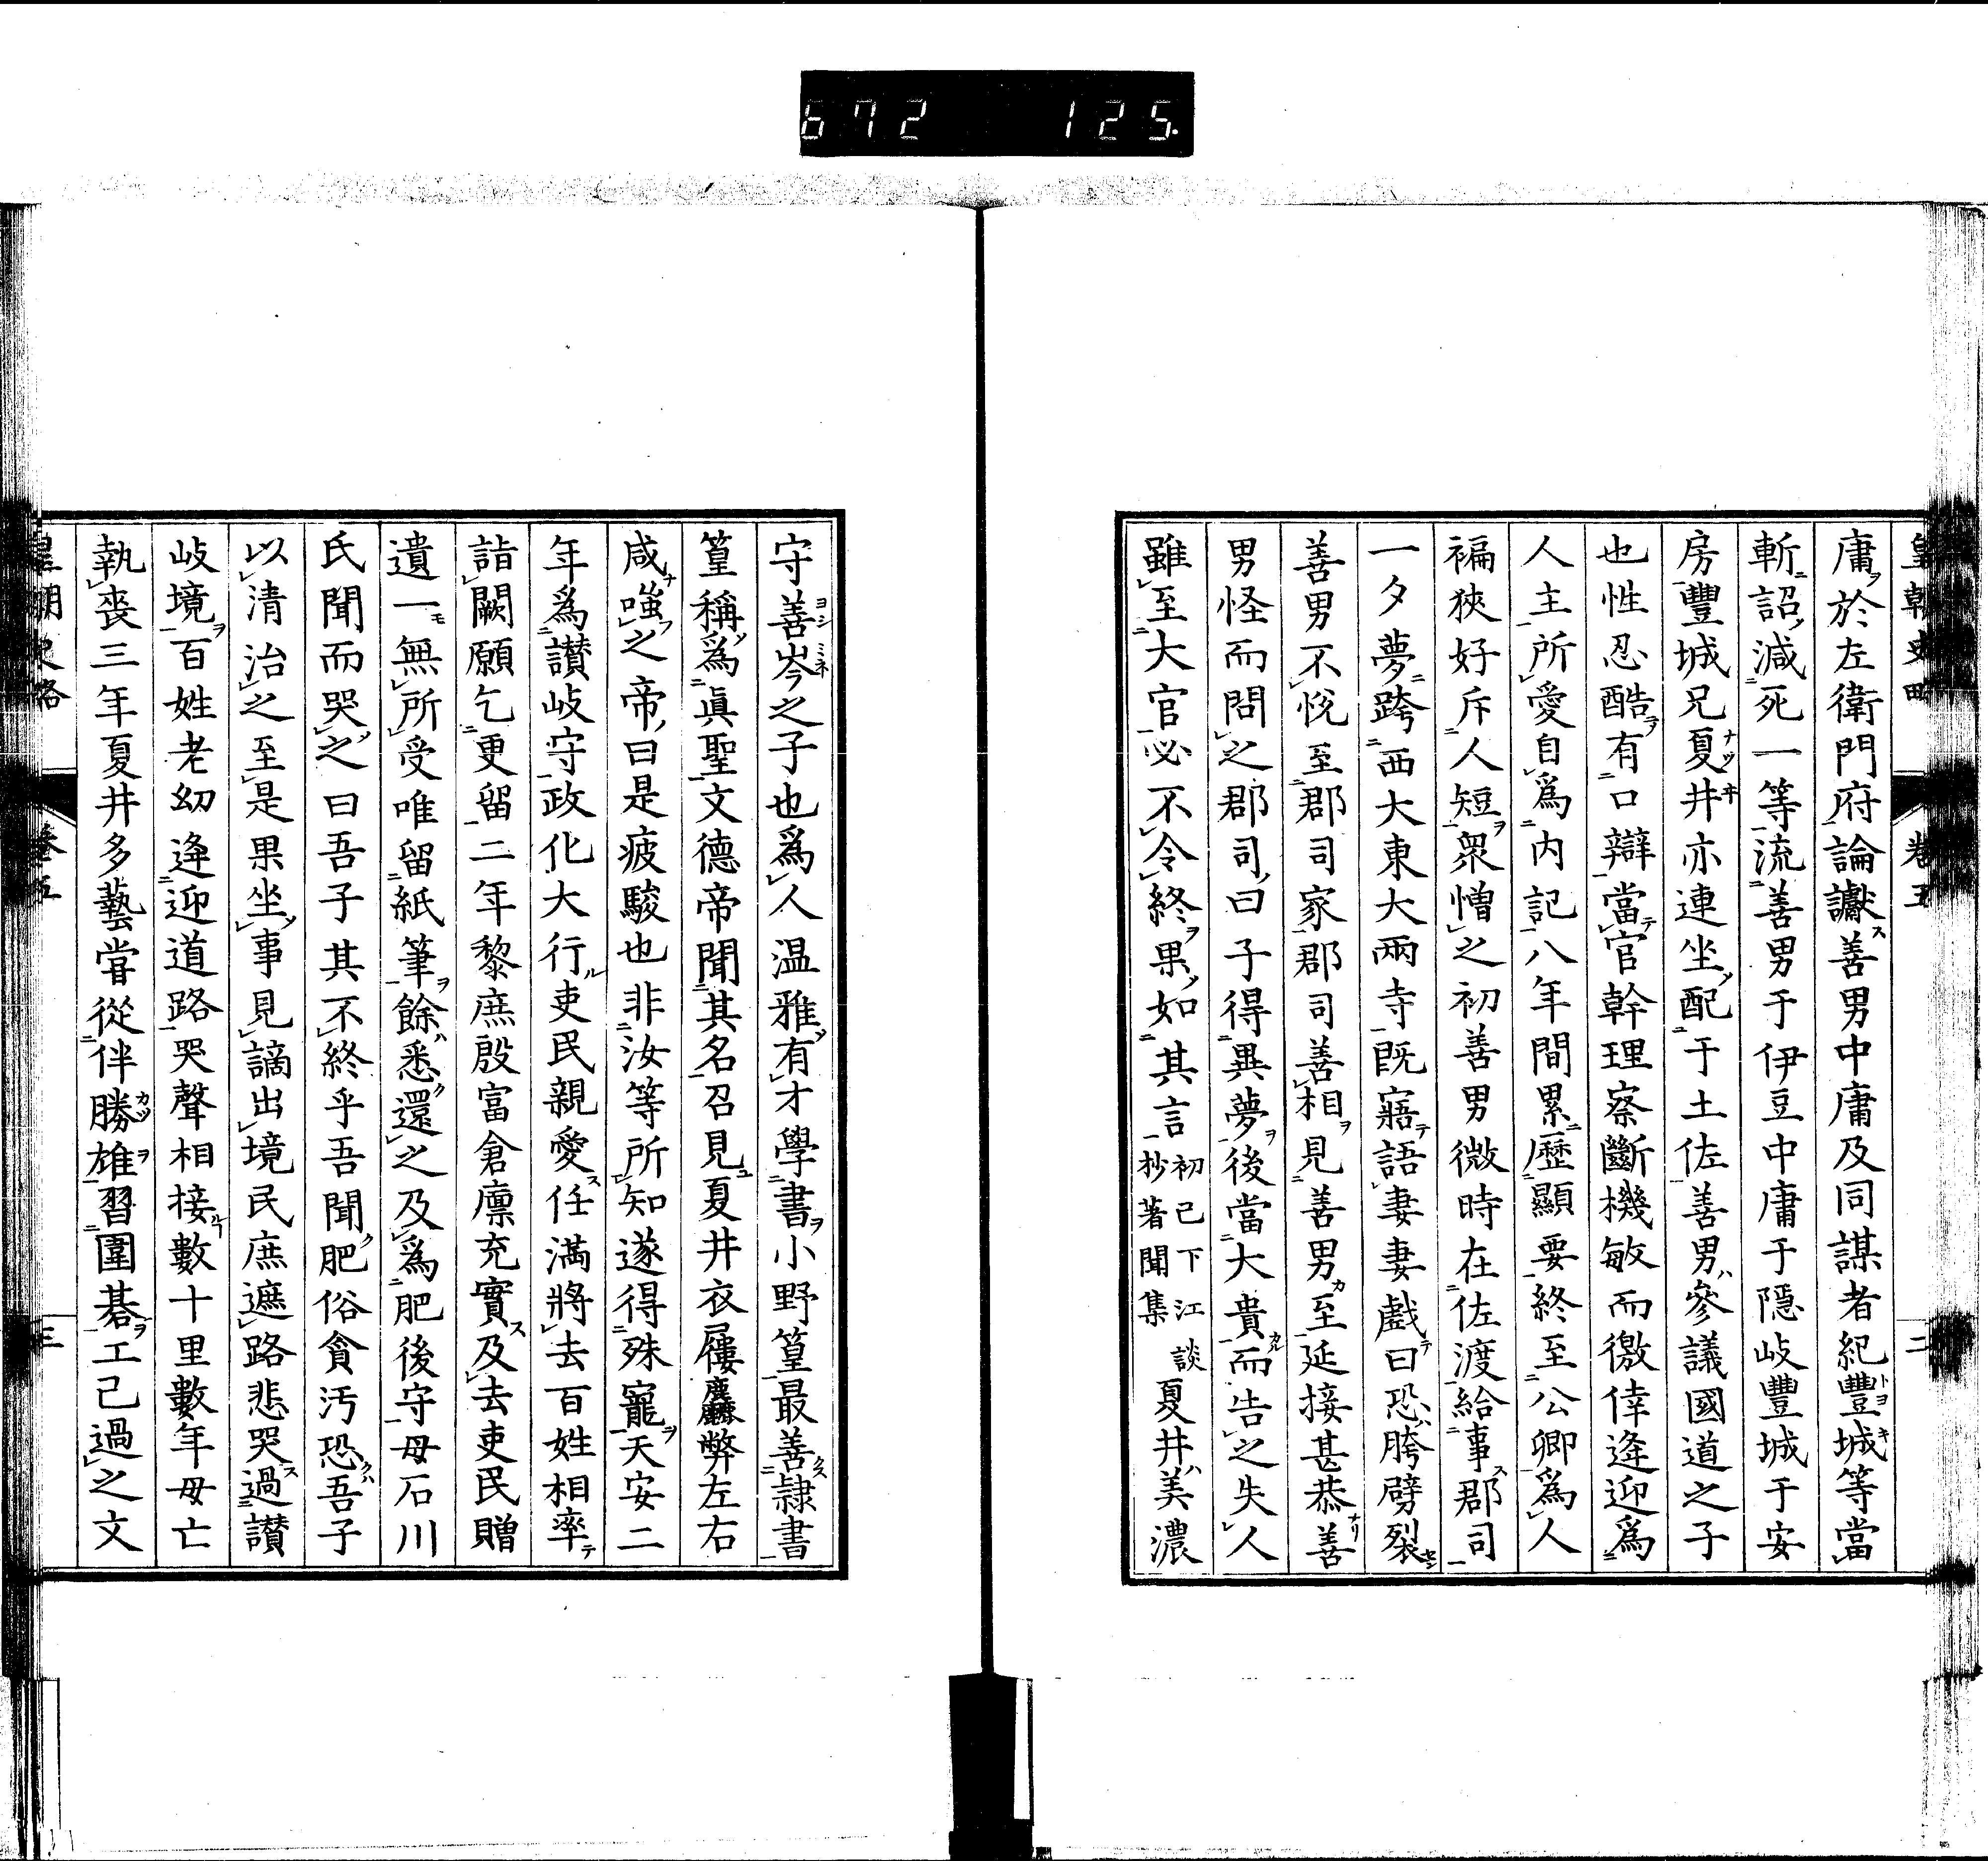 672 125
皇朝史略 卷五 二
庸於左衛門府論讞善男中庸及同謀者紀豐城等當
斬詔減死一等流善男于伊豆中庸于隱岐豐城于安
房豐城兄夏井亦連坐配于土佐善男參議國道之子
也性忍酷有口辯當官幹理察斷機敏而徼倖逢迎爲
人主所愛自爲内記八年間累歷顯要終至公卿爲人
褊狹好斥人短衆憎之初善男微時在佐渡給事郡司
一夕夢跨西大東大兩寺既寤語妻妻戲曰恐胯劈裂
善男不悅至郡司家郡司善相見善男至延接甚恭善
男怪而問之郡司曰子得異夢後當大貴而告之失人
雖至大官必不令終果如其言初已下江談抄著聞集夏井美濃
守善岑之子也爲人温雅有才學書小野篁最善隷書
篁稱爲眞聖文德帝聞其名召見夏井衣屨麤弊左右
咸嗤之帝曰是疲駿也非汝等所知遂得殊寵天安二
年爲讃岐守政化大行吏民親愛任滿將去百姓相率
詣闕願乞更留二年黎庶殷富倉廪充實及去吏民贈
遺一無所受唯留紙筆餘悉還之及爲肥後守母石川
氏聞而哭之曰吾子其不終乎吾聞肥俗貪汚恐吾子
以清治之至是果坐事見謫出境民庶遮路悲哭過讃
岐境百姓老幼逢迎道路哭聲相接數十里數年母亡
執喪三年夏井多藝嘗從伴勝雄習圍碁工已過之文
皇朝史略 卷五 三